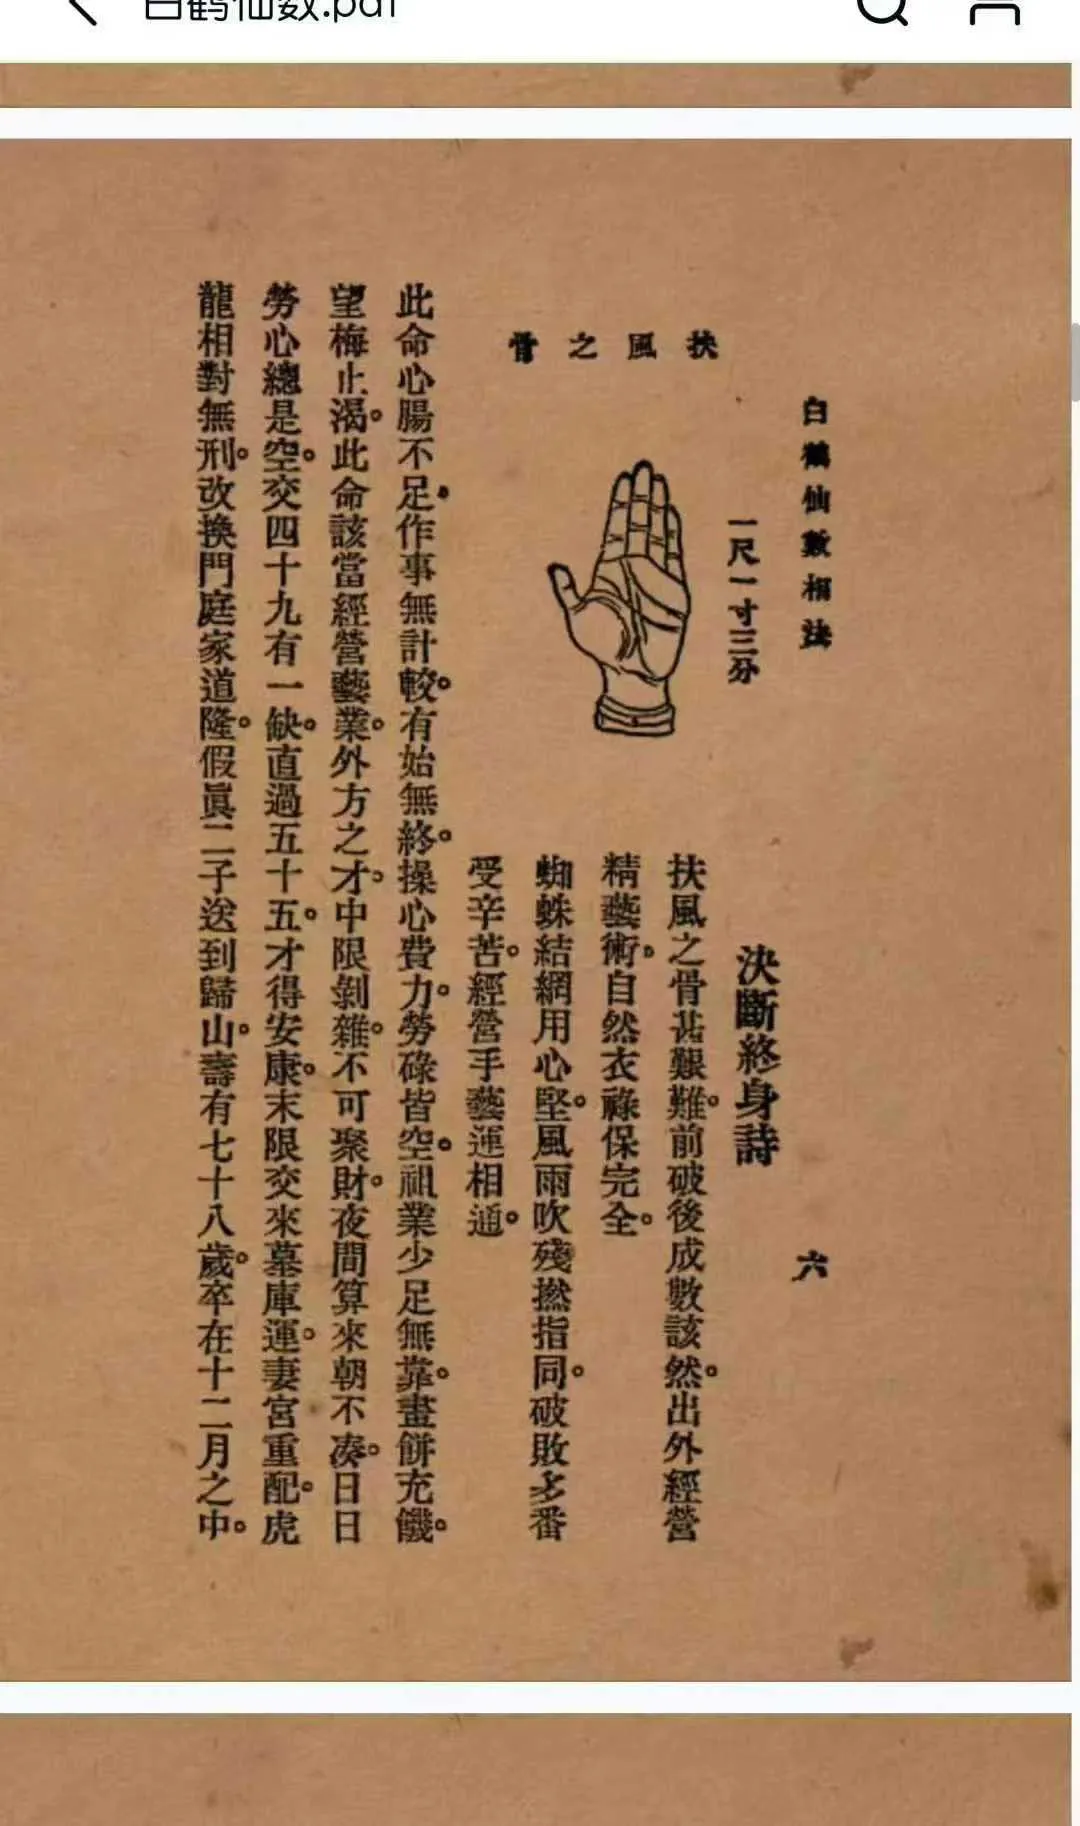 白鹤仙数.pdf
白鶴仙數相法
六
決斷終身詩
一尺一寸三分
扶風之骨
扶風之骨甚艱難。前破後成數該然。出外經營
精藝術。自然衣祿保完全。
蜘蛛結網用心堅。風雨吹殘撚指同。破敗多番
受辛苦。經營手藝運相通。
此命心腸不足。作事無計較。有始無終。操心費力。勞碌皆空。祖業少足無靠。畫餅充饑。
望梅止渴。此命該當經營藝業。外方之才。中限剝雜。不可聚財。夜間算來朝不凑。日日
勞心總是空。交四十九有一缺。直過五十五。才得安康。末限交來墓庫運。妻宮重配。虎
龍相對無刑。改換門庭家道隆。假眞二子送到歸山。壽有七十八歲。卒在十二月之中。